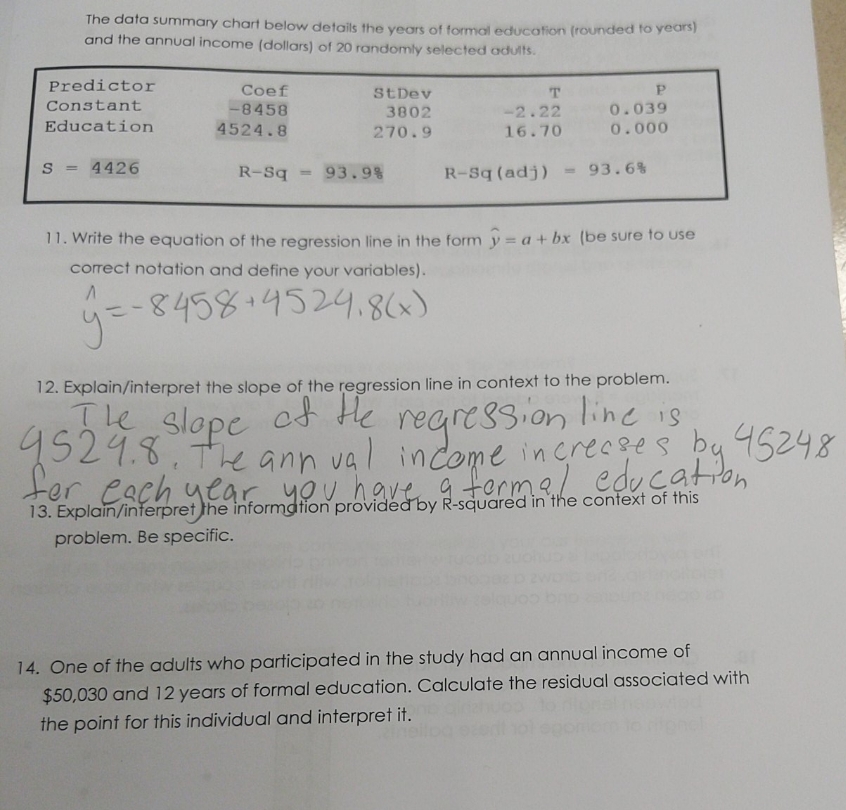 The data summary chart below details the years of formal education (rounded to years)
and the annual income (dollars) of 20 randomly selected adults.
Predictor Coef StDev T P
Constant -8458 3802 -2.22 0.039
Education 4524.8 270.9 16.70 0.000
S = 4426 R-Sq = 93.9% R-Sq(adj) = 93.6%
11. Write the equation of the regression line in the form ŷ = a + bx (be sure to use
correct notation and define your variables).
ŷ=-8458+4524.8(x)
12. Explain/interpret the slope of the regression line in context to the problem.
The slope of the regression line is
4524.8. The annual income increases by 45248
for each year you have a formal education
13. Explain/interpret the information provided by R-squared in the context of this
problem. Be specific.
14. One of the adults who participated in the study had an annual income of
$50,030 and 12 years of formal education. Calculate the residual associated with
the point for this individual and interpret it.